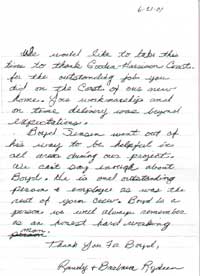 6-21-07
We would like to take this
time to thank Gooden-Harrison Const.
for the outstanding job you
did on the Const. of our new
home. You workmanship and
on time delivery was beyond
expectations.
Boyd Jensen went out of
his way to be helpful in
all areas during our project.
We cant say enough about
Boyd. He is one outstanding
person & employee as was the
rest of your crew. Boyd is a
person we will always remember
as an honest hard working
man.
person
Thank You For Boyd,
Randy & Barbara